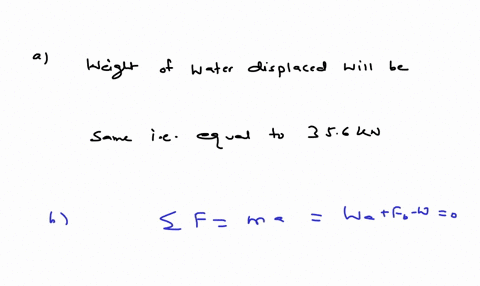 a) Weight of Water displaced will be
Same i.e. equal to 35.6 kN
b) ∑ F = ma = Wa + Fb - W = 0